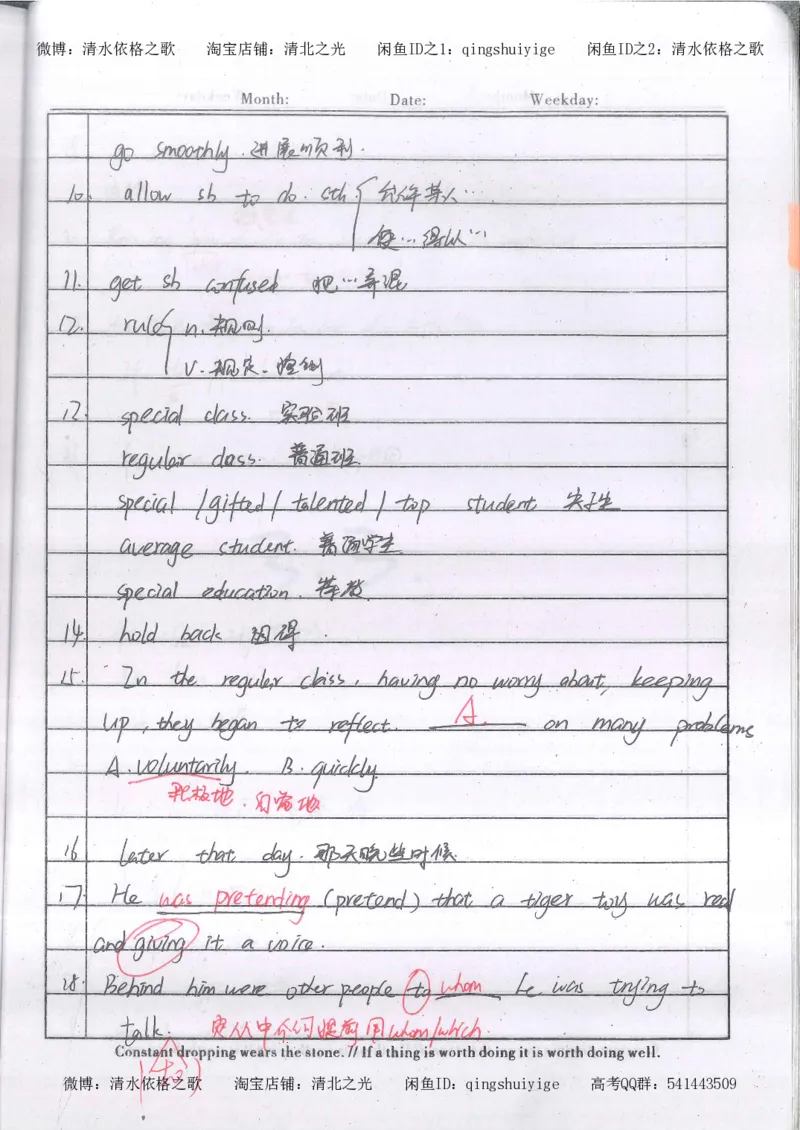 微博：清水依格之歌 淘宝店铺：清北之光 闲鱼ID之1：qingshuiyige 闲鱼ID之2：清水依格之歌
Month: Date: Weekday:
go smoothly. 进展顺利.
10. allow sb to do. sth { 允许某人…
使…得以…
11. get sb confused 把…弄混
12. rule { n. 规则.
v. 规定. 控制
13. special class. 实验班
regular class. 普通班.
special / gifted / talented / top student 尖子生
average student. 普通学生
special education. 特教.
14. hold back 阻碍.
15. In the regular class, having no worry about, keeping
up, they began to reflect. A. on many problems
A. voluntarily. B. quickly.
积极地. 自愿地
16 later that day. 那天晚些时候.
17. He was pretending (pretend) that a tiger toy was real
and giving it a voice.
18. Behind him were other people to whom he was trying to
talk. 定从中介词提前用whom/which.
Constant dropping wears the stone. // If a thing is worth doing it is worth doing well.
微博：清水依格之歌 淘宝店铺：清北之光 闲鱼ID：qingshuiyige 高考QQ群：541443509